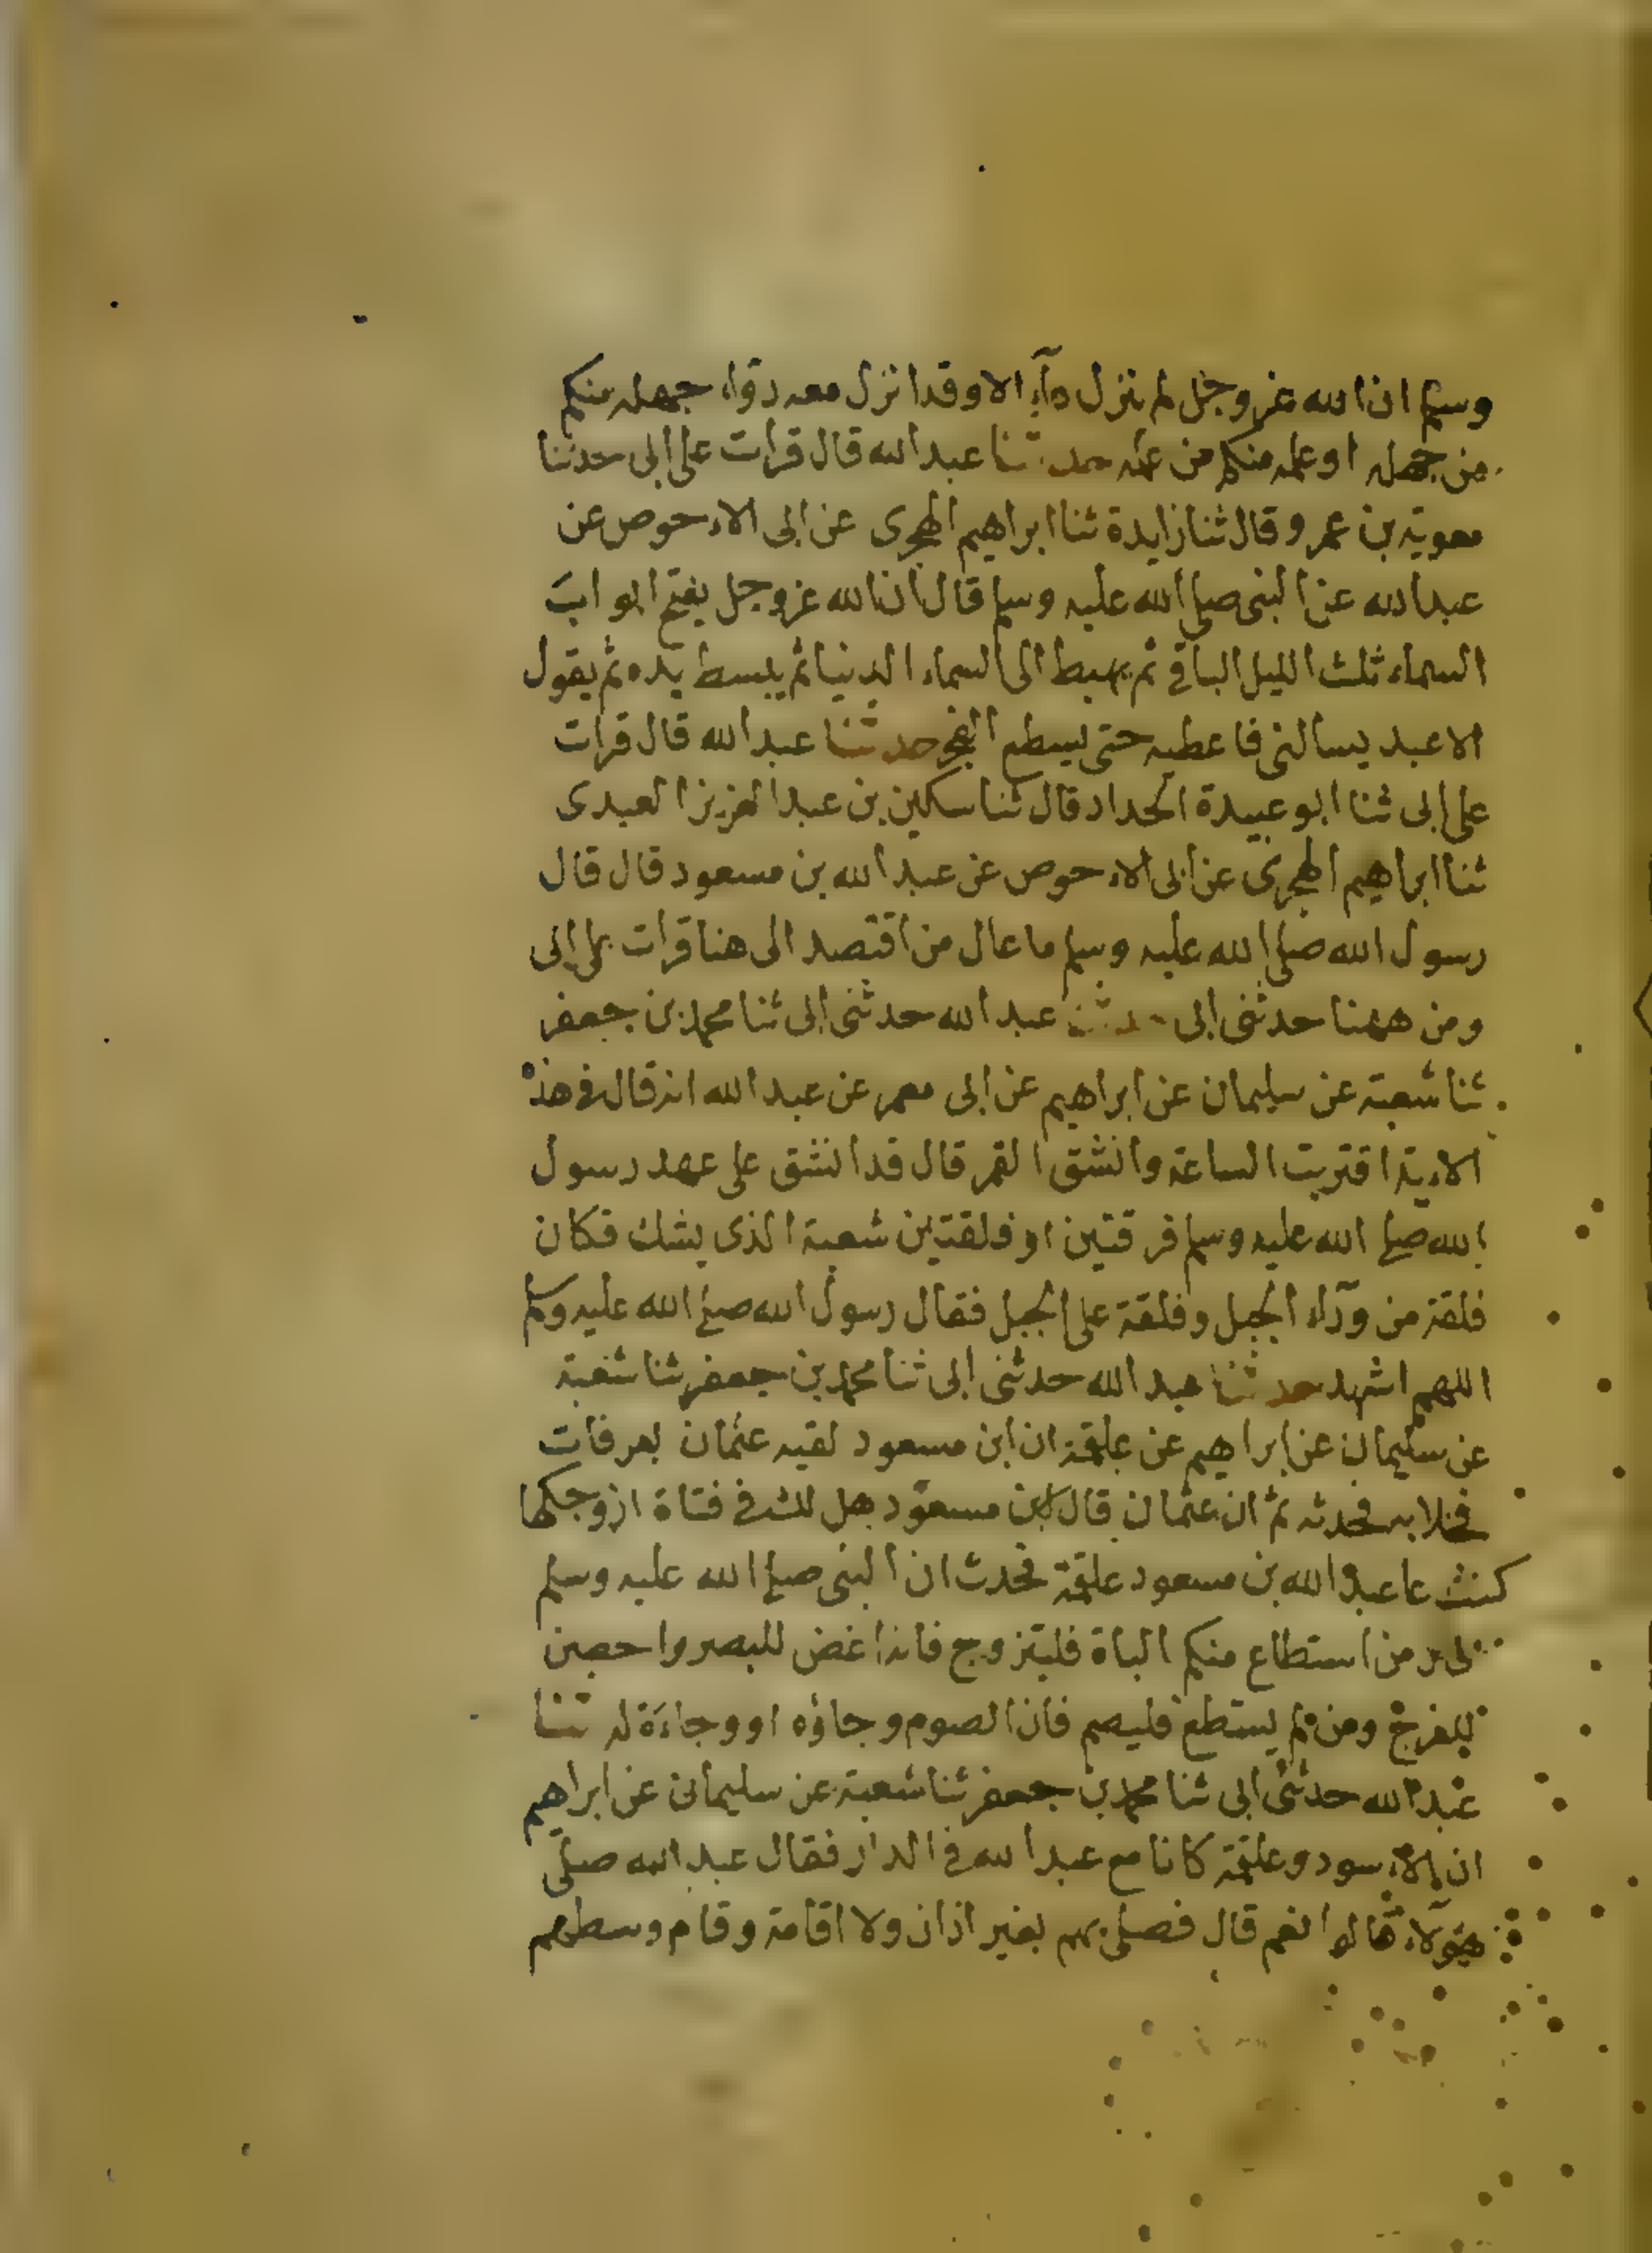 وسلم ان الله عز وجل لم ينزل دآء الا وقد انزل معه دواء جهله منكم
من جهله او علمه منكم من علمه حدثنا عبد الله قال قرات على ابى حدثنا
معوية بن عمرو قال ثنا زايدة ثنا ابراهيم الهجرى عن ابى الاحوص عن
عبد الله عن النبى صلى الله عليه وسلم قال ان الله عز وجل يفتح ابواب
السماء ثلث الليل الباقي ثم يهبط الى السماء الدنيا ثم يبسط يده ثم يقول
الا عبد يسالنى فاعطيه حتى يسطع الفجر حدثنا عبد الله قال قرات
على ابى ثنا ابو عبيدة الحداد قال ثنا سكين بن عبد العزيز العبدى
ثنا ابراهيم الهجرى عن ابى الاحوص عن عبد الله بن مسعود قال قال
رسول الله صلى الله عليه وسلم ما عال من اقتصد الى هنا قرات على ابى
ومن ههنا حدثنى ابى حدثنا عبد الله حدثنى ابى ثنا محمد بن جعفر
ثنا شعبة عن سليمان عن ابراهيم عن ابى معمر عن عبد الله انه قال في هذه
الاية اقتربت الساعة وانشق القمر قال قد انشق على عهد رسول
الله صلى الله عليه وسلم فرقتين او فلقتين شعبة الذى يشك فكان
فلقة من ورآء الجبل وفلقة على الجبل فقال رسول الله صلى الله عليه وسلم
اللهم اشهد حدثنا عبد الله حدثنى ابى ثنا محمد بن جعفر ثنا شعبة
عن سليمان عن ابراهيم عن علقمة ان ابن مسعود لقيه عثمان بعرفات
فخلا به فحدثه ثم ان عثمان قال لابن مسعود هل لك في فتاة ازوجكها
عبد الله بن مسعود علقمة فحدث ان النبى صلى الله عليه وسلم
من استطاع منكم الباة فليتزوج فانه اغض للبصر واحصن
للفرج ومن لم يستطع فليصم فان الصوم وجاؤه او وجاءة له ثنا
عبد الله حدثنى ابى ثنا محمد بن جعفر ثنا شعبة عن سليمان عن ابراهيم
ان الاسود وعلقمة كانا مع عبد الله في الدار فقال عبد الله صلى
هؤلاء قالوا نعم قال فصلى بهم بغير اذان ولا اقامة وقام وسطهم